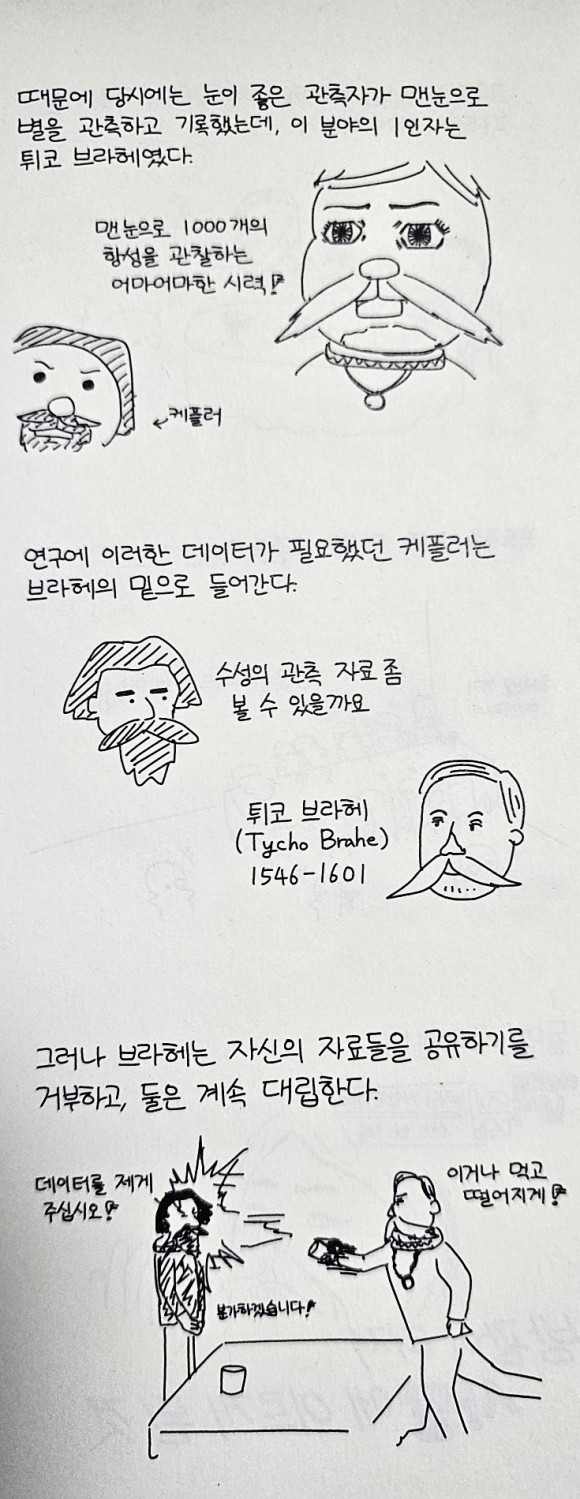 때문에 당시에는 눈이 좋은 관측자가 맨눈으로
별을 관측하고 기록했는데, 이 분야의 1인자는
튀코 브라헤였다.
맨눈으로 1000개의
항성을 관찰하는
어마어마한 시력!
←케플러
연구에 이러한 데이터가 필요했던 케플러는
브라헤의 밑으로 들어간다.
수성의 관측 자료 좀
볼 수 있을까요
튀코 브라헤
(Tycho Brahe)
1546-1601
그러나 브라헤는 자신의 자료들을 공유하기를
거부하고, 둘은 계속 대립한다.
데이터를 제게
주십시오!
이거나 먹고
떨어지게!
분가하겠습니다!